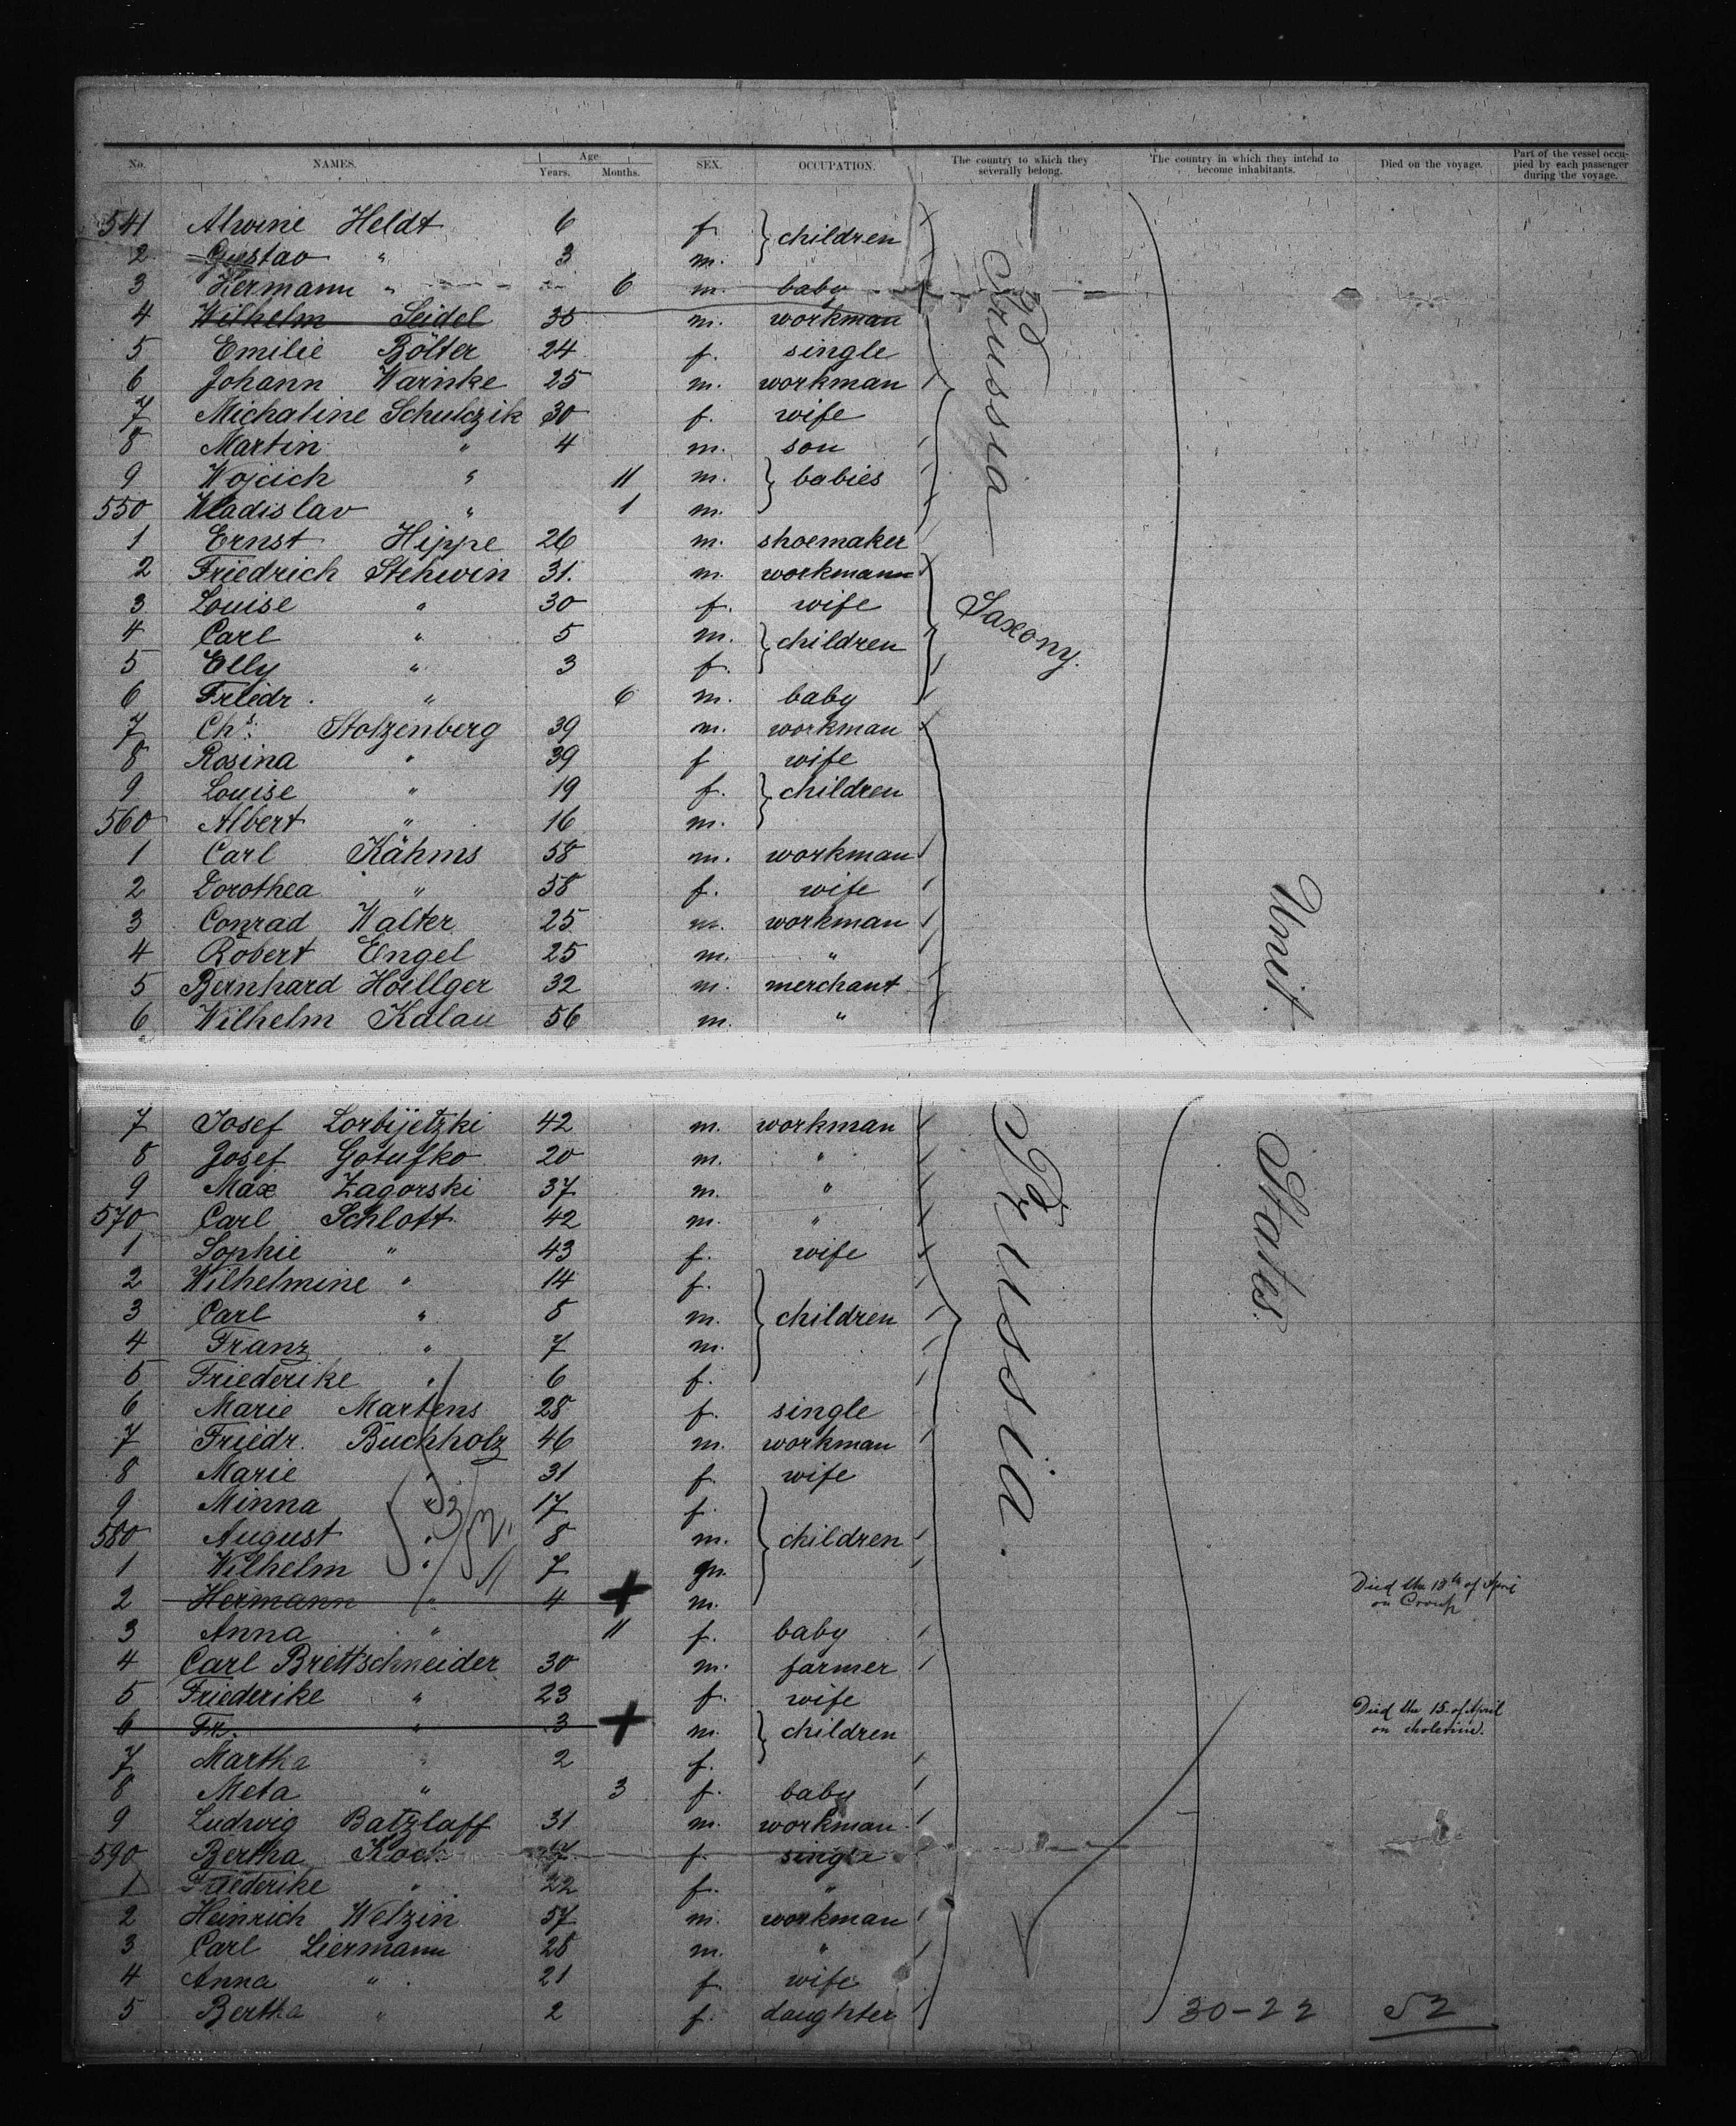 No. NAMES. Age Years. Months. SEX. OCCUPATION. The country to which they severally belong. The country in which they intend to become inhabitants. Died on the voyage. Part of the vessel occupied by each passenger during the voyage.
541 Alwine Heldt 6 f. } children
2 Gustav " 3 m.
3 Hermann " 6 m. baby
4 Wilhelm Seidel 30 m. workman
5 Emilie Bölter 24 f. single
6 Johann Warnke 25 m. workman
Prussia
7 Michaline Schulczik 30 f. wife
8 Martin " 4 m. son
9 Wojcich " 11 m. } babies
550 Wladislav " 1 m.
1 Ernst Hippe 26 m. shoemaker
2 Friedrich Stehwin 31. m. workmann
3 Louise " 30 f. wife
Saxony.
4 Carl " 5 m. } children
5 Elly " 3 f.
6 Friedr. " 6 m. baby
7 Chs. Stolzenberg 39 m. workman
8 Rosina " 39 f wife
9 Louise " 19 f. } children
560 Albert " 16 m.
1 Carl Kähms 58 m. workman
2 Dorothea " 58 f. wife
3 Conrad Walter 25 m. workman
4 Robert Engel 25 m. "
5 Bernhard Hoellger 32 m. merchant
6 Wilhelm Kalau 56 m. "
Unit.
7 Josef Lorbijetzki 42 m. workman
8 Josef Gotufko 20 m. "
9 Max Zagorski 37 m. "
570 Carl Schlott 42 m. "
States
1 Sophie " 43 f. wife
2 Wilhelmine " 14 f. } children
3 Carl " 8 m.
4 Franz " 7 m.
5 Friederike " 6 f.
Prussia.
6 Marie Martens 28 f. single
7 Friedr. Buchholz 46 m. workman
8 Marie " 31 f. wife
9 Minna " 17 f. } children
580 August " 8 m.
1 Wilhelm " 7 m.
2 Hermann " 4 + m. Died the 13th of April on Croup
3 Anna " 11 f. baby
4 Carl Brettschneider 30 m. farmer
5 Friederike " 23 f. wife
6 Fr. " 3 + m. } children Died the 15. of April on cholerine.
7 Martha " 2 f.
8 Meta " 3 f. baby
9 Ludwig Batzlaff 31 m. workman
590 Bertha Koch f. single
1 Friederike " 22 f. "
2 Heinrich Welzin 57 m. workman
3 Carl Liermann 28 m. "
4 Anna " 21 f. wife
5 Bertha " 2 f. daughter 30-22 52